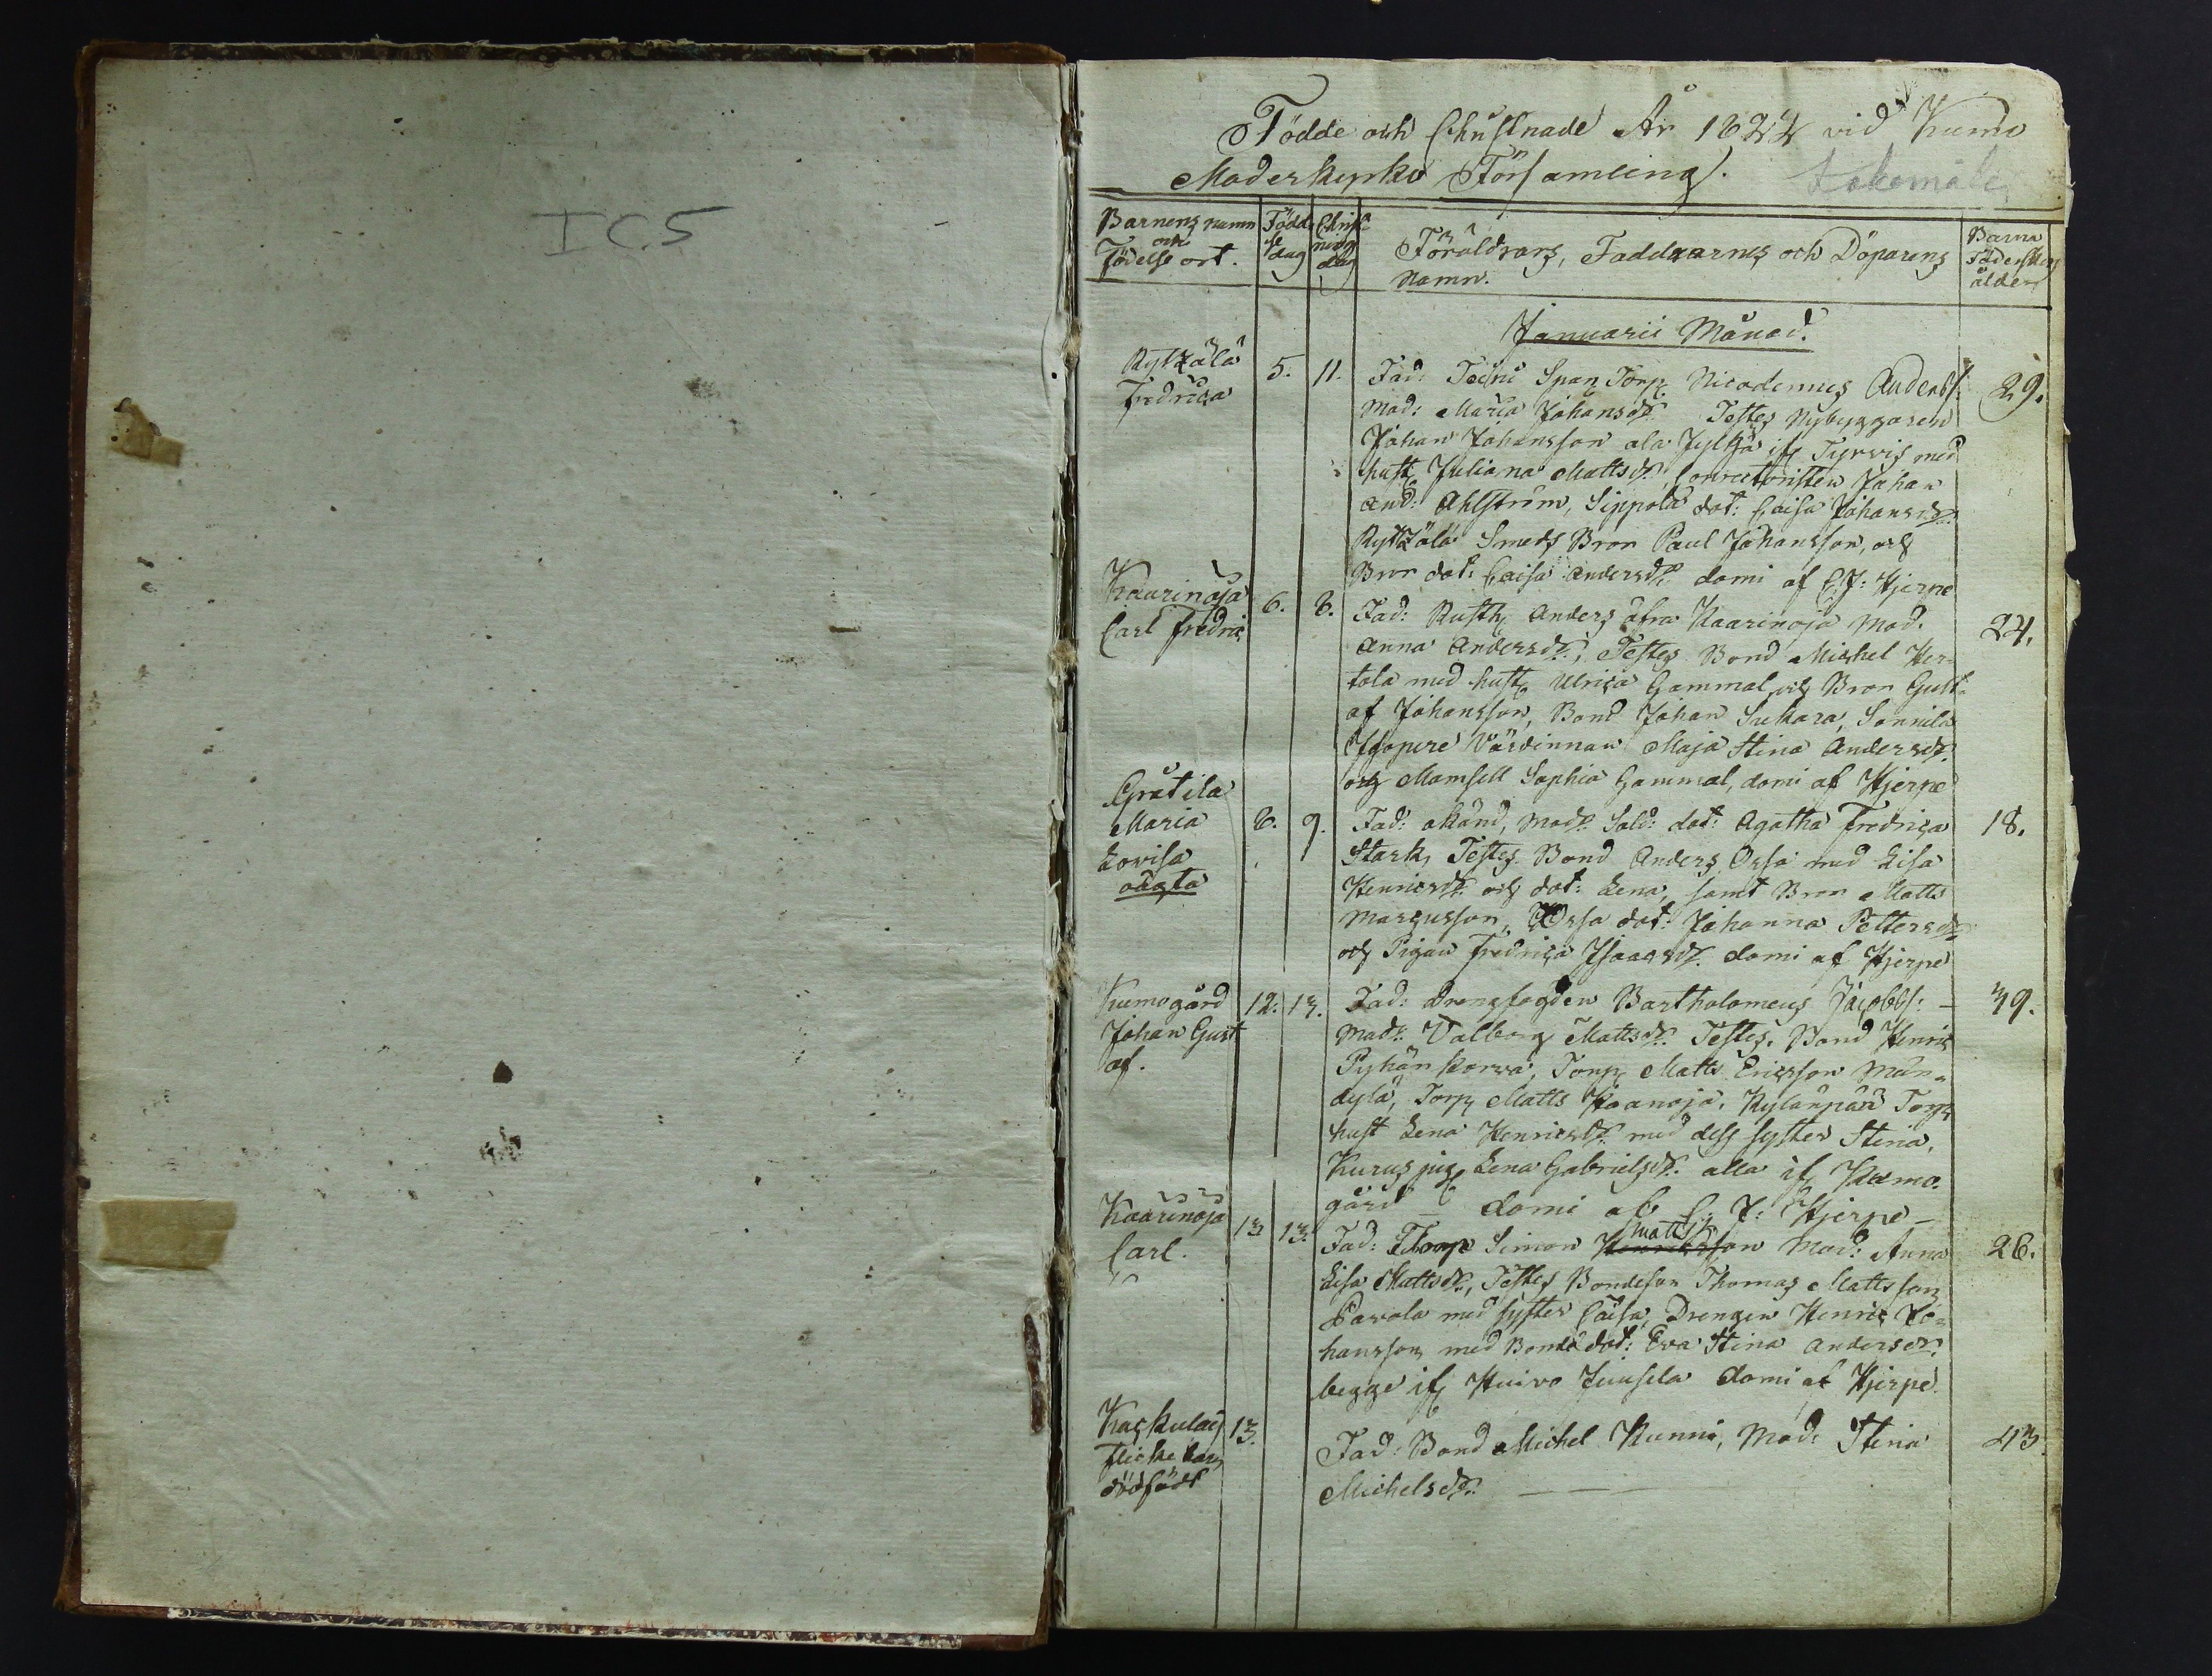 I C.5
Födde och Christnade År 1822 vid Kumo
Moderkyrko Församling.
Kokemäki
Barnens namn och Födelse ort.
Födelse dag
Christnings dag
Föräldrars, Faddrarnes och Döparens Namn.
Barna Föderskans ålder
Januarii Månad.
Rytzälä
Fredrica
5.
11.
Fad: Span Torp. Nicodemus Anderss.
Mad: Maria Johansdr. Testes Nybyggaren
Johan Johansson ala Jyltzä if. Tyrvis med
hust. Juliana Mattsdr.
And: Ahlström, Sippola dot: Caisa Johansdr.
Rytzälä Smeds Bror Paul Johansson, och
Bror dot: Caisa Andersdr. domi af C.J: Hjerpe
29.
Kaarinoja
Carl Fredric
6.
8.
Fad: Rusth. Anders öfra Kaarinoja Mod.
Anna Andersdr. Testes Bond Michel Her-
tola med hust. Ulrica Gammal, och Bror Gust-
af Johansson, Bond Johan Sukara, Sonnila
Yöpere Värdinnan Maja Stina Andersdr.
och Mamsell Sophia Gammal, domi af Hjerpe
24.
Gråtila
Maria
Lovisa
oägta
8.
9.
Fad: okänd, Modr. Sold: dot: Agatha Fredrica
Stark, Testes Bond Anders Orsa med Lisa
Henricsdr. och dot: Lena, samt Bror Matts
Marcusson, Orsa dot: Johanna Pettersdr.
och Pigan Fredrica Isaacsdr. domi af Hjerpe
18.
Kumogård
Johan Gust
af.
12.
13.
Fad: Drengfogden Bartholomeus Jacobss: -
Modr. Valborg Mattsdr. Testes. Bond Henric
Pyhänkorva, Torp. Matts Ericsson Män-
dylä, Torp. Matts Haanoja, Kylänpää Torp.
hust Lena Henricsdr. med dess syster Stina,
Kurus pig. Lena Gabrielsdr. alla if. Kumo
gård - domi af C: J: Hjerpe -
39.
Kaarinoja
Carl.
13
13.
Matts
Fad: Torp Simon Henricsson Mod: Anna
Lisa Mattsdr., Testes Bondeson Thomas Mattsson
Pavola med syster Caisa, Drengen Henric Jo-
hansson med Bonde dot: Eva Stina Andersdr.
begge if. Huivo Juusela domi af Hjerpe
26.
Kaskulais
flicke barn
dödfödt
13.
Fad: Bond Michel Kunni, Mod: Stina
Michelsdr. -
43